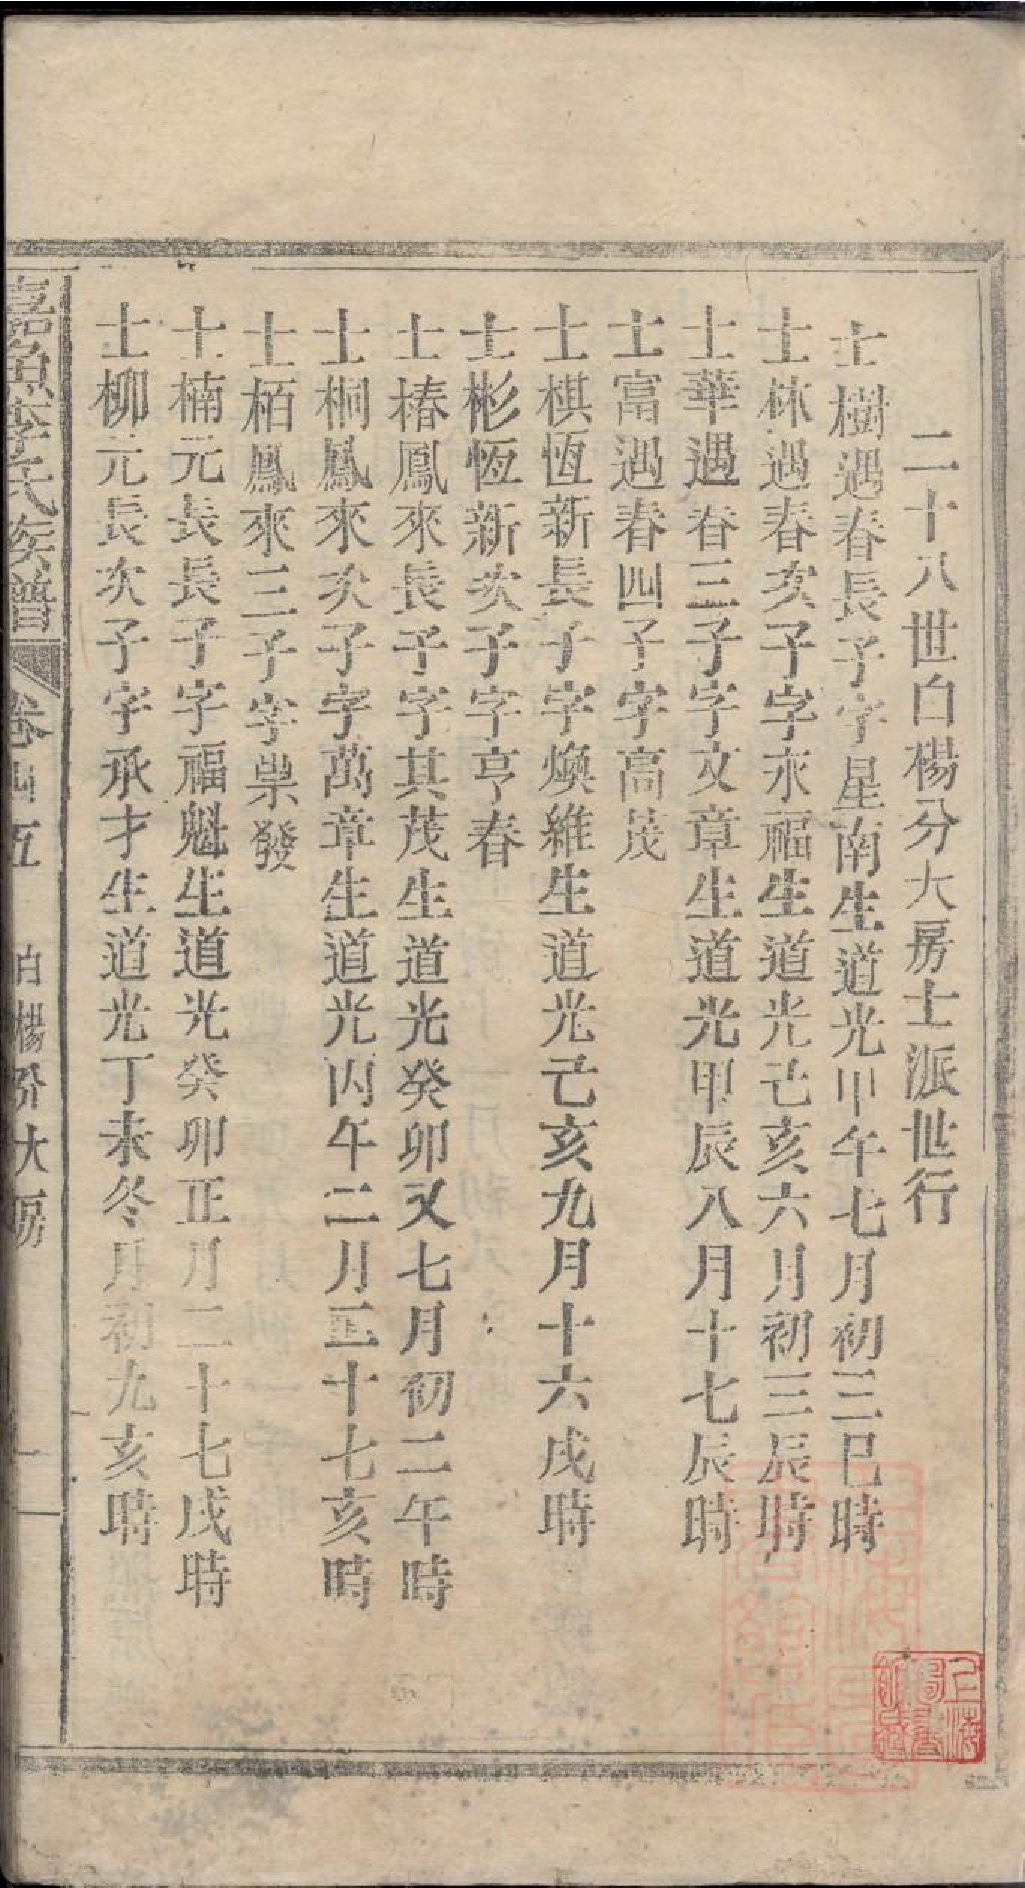 二十八世白楊分大房士派世行
士樹遇春長子字星南生道光甲午七月初三巳時
士林遇春次子字永福生道光己亥六月初三辰時
士華遇春三子字文章生道光甲辰八月十七辰時
士富遇春四子字高茂
士棋恆新長子字煥維生道光己亥九月十六戌時
士彬恆新次子字亨春
士椿鳳來長子字其茂生道光癸卯又七月初二午時
士桐鳳來次子字萬章生道光丙午二月二十七亥時
士栢鳳來三子字榮發
士楠元長長子字福魁生道光癸卯正月二十七戌時
士柳元長次子字承才生道光丁未冬月初九亥時
嘉魚李氏族譜 卷 五 白楊分大房 一
上海圖書館藏